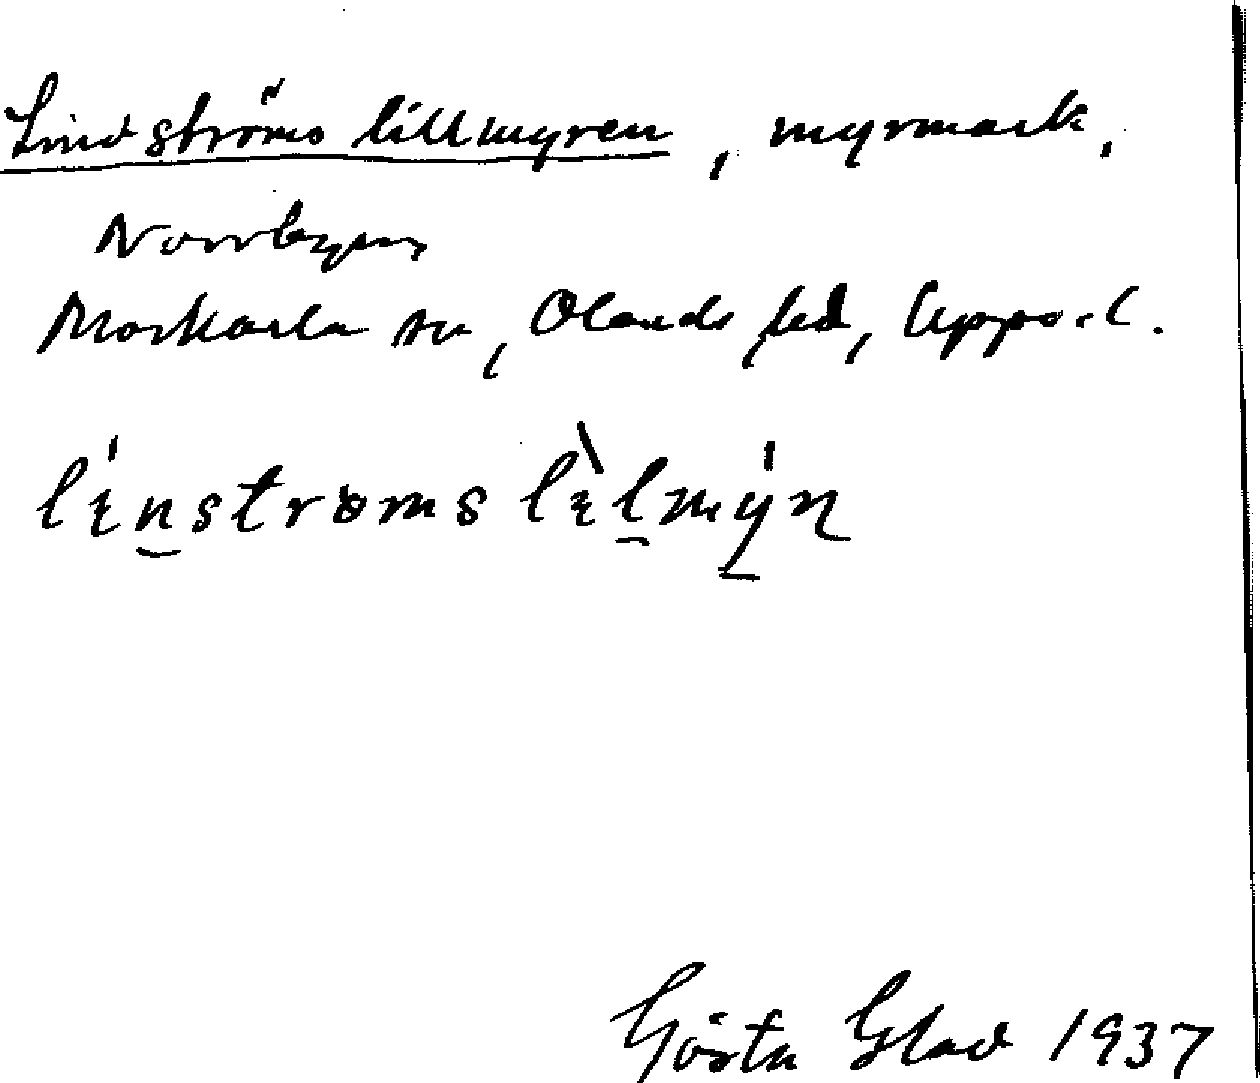 Lindströms lillmyren, myrmark,
Norrbyn,
Morkarla sn, Olands hd, Upps. l.
línstrøms lìlmýn
Gösta Glad 1937